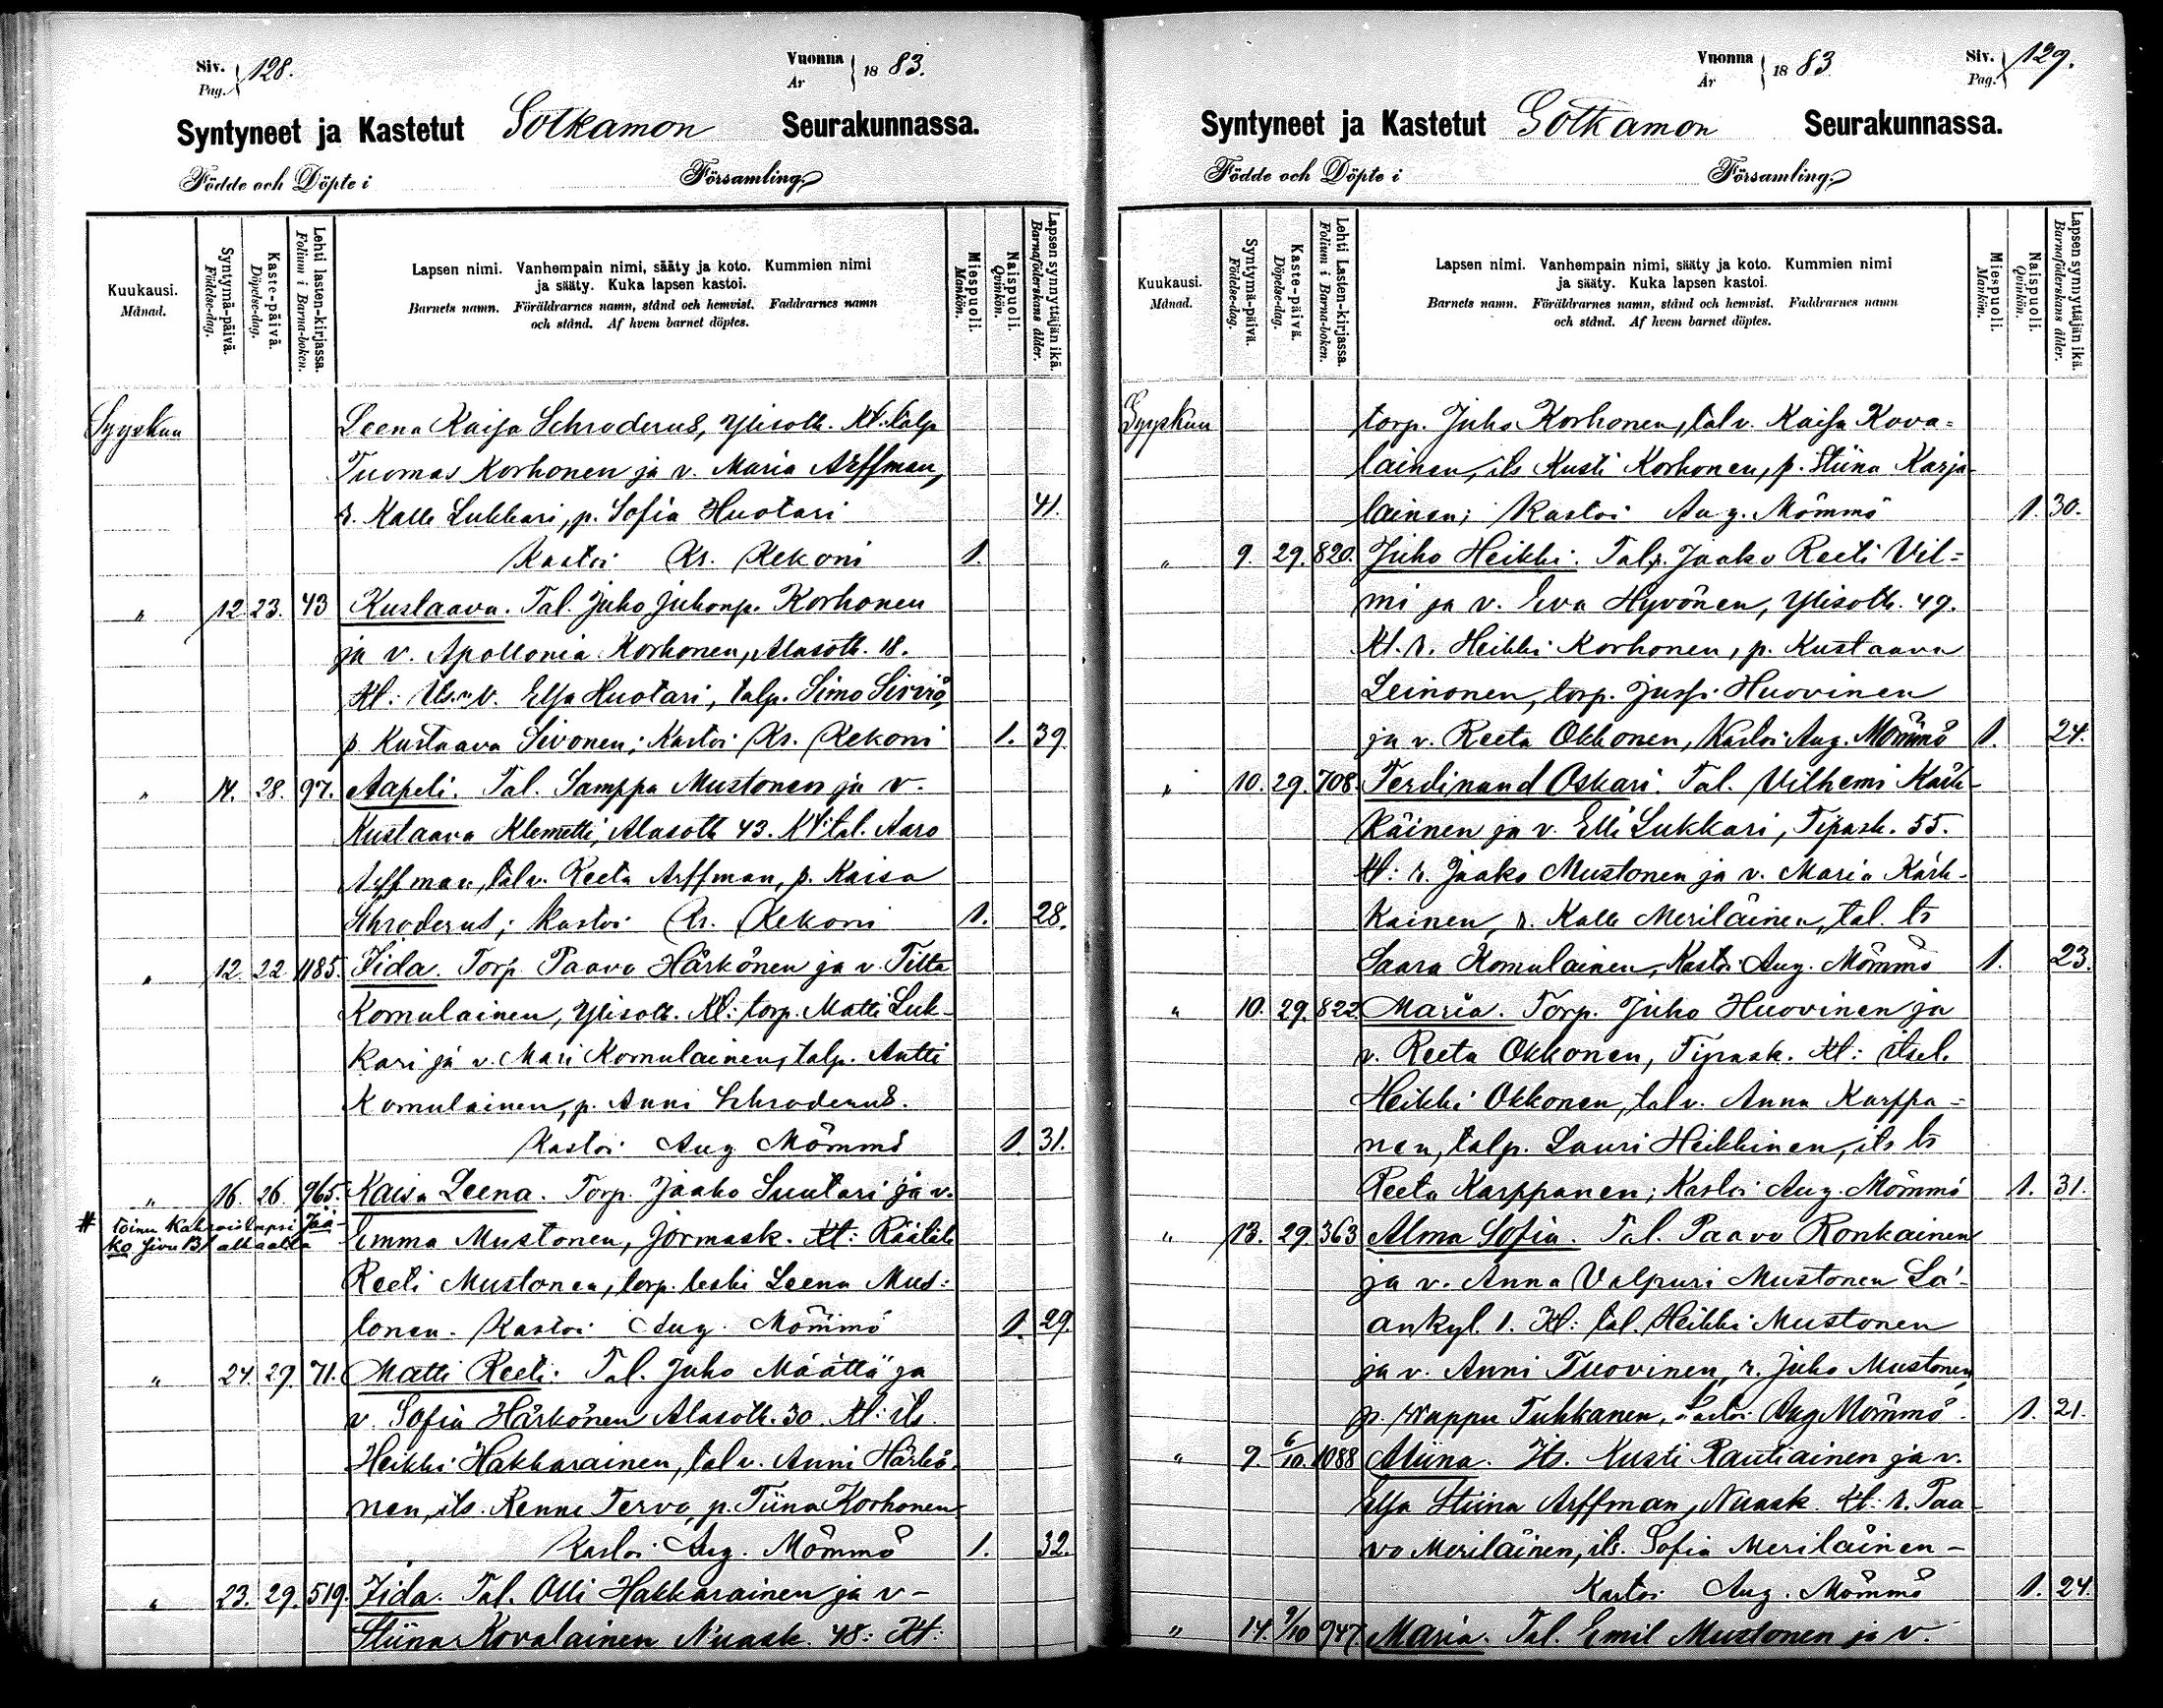 Siv. Pag. 128. Vuonna År 1883.
Syntyneet ja Kastetut Sotkamon Seurakunnassa.
Födde och Döpte i Församling.
Kuukausi. Månad.
Syntymä-päivä. Födelse-dag.
Kaste-päivä. Döpelse-dag.
Lehti lasten-kirjassa. Folium i Barna-boken.
Lapsen nimi. Vanhempain nimi, sääty ja koto. Kummien nimi
ja sääty. Kuka lapsen kastoi.
Barnets namn. Föräldrarnes namn, stånd och hemvist. Faddrarnes namn
och stånd. Af hvem barnet döptes.
Miespuoli. Mankön.
Naispuoli. Qvinkön.
Lapsen synnyttäjän ikä. Barnaföderskans ålder.
Syyskuu Leena Kaisa Schroderus, Ylisotk. Kt: talp
Tuomas Korhonen ja v. Maria Arffman,
r. Kalle Lukkari, p. Sofia Huotari 41.
Kastoi Kr. Rekoni 1.
" 12 23. 43 Kustaava. Tal. Juho Juhonp. Korhonen
ja v. Apollonia Korhonen, Alasotk. 18.
Kt: its. v. Elsa Huotari, talp. Simo Sirviö,
p. Kustaava Sivonen; Kastoi Kr. Rekoni 1. 39
" 14. 28. 97. Aapeli. Tal. Samppa Mustonen ja v.
Kustaava Klemetti, Alasotk 43. Kt: tal. Aaro
Arffman, talv. Reeta Arffman, p. Kaisa
Schroderus; Kastoi Kr. Rekoni 1. 28.
" 12. 22 1185. Iida. Torp. Paavo Härkönen ja v. Titta
Komulainen, Ylisotk. Kt: torp. Matti Luk-
kari ja v. Mari Komulainen, talp. Antti
Komulainen, p. Anni Schroderus.
Kastoi Aug Mömmö 1. 31.
" 16. 26. 965. Kaisa Leena. Torp. Jaako Suutari ja v.
# toinen kaksoislapsi Jaa-
ko sivu 131 alhaalla Emma Mustonen, Jormask. Kt: Räätäli
Reeti Mustonen, torp. leski Leena Mus:
tonen. Kastoi Aug. Mömmö 1. 29.
" 24. 29. 71. Matti Reeti. Tal. Juho Määttä ja
v. Sofia Härkönen Alasotk. 30. Kt: its
Heikki Hakkarainen, talv. Anni Härkö-
nen, its. Renne Tervo, p. Tiina Korhonen
Kastoi Aug. Mömmö 1. 32.
" 23. 29. 519. Iida. Tal. Olli Hakkarainen ja v-
Stiina Kovalainen Nuask. 48: Kt:
Vuonna År 1883 Siv. Pag. 129.
Syntyneet ja Kastetut Sotkamon Seurakunnassa.
Födde och Döpte i Församling.
Kuukausi. Månad.
Syntymä-päivä. Födelse-dag.
Kaste-päivä. Döpelse-dag.
Lehti Lasten-kirjassa. Folium i Barna-boken.
Lapsen nimi. Vanhempain nimi, sääty ja koto. Kummien nimi
ja sääty. Kuka lapsen kastoi.
Barnets namn. Föräldrarnes namn, stånd och hemvist. Faddrarnes namn
och stånd. Af hvem barnet döptes.
Miespuoli. Mankön.
Naispuoli. Qvinkön.
Lapsen synnyttäjän ikä. Barnaföderskans ålder.
Syyskuu torp. Juho Korhonen, talv. Kaisa Kova=
lainen, its Kusti Korhonen, p. Stiina Karja-
lainen; Kastoi Aug. Mömmö 1. 30.
" 9. 29. 820. Juho Heikki. Talp. Jaako Reeti Vil=
mi ja v. Eva Hyvönen, Ylisotk. 49.
Kt. r. Heikki Korhonen, p. Kustaava
Leinonen, torp. Jussi Huovinen
ja v. Reeta Okkonen, Kastoi Aug. Mömmö 1. 24.
" 10. 29. 708. Ferdinand Oskari. Tal. Vilhemi Kärk-
käinen ja v. Elli Lukkari, Tipask. 55.
Kt: r. Jaako Mustonen ja v. Maria Kärk-
käinen, r. Kalle Meriläinen, tal. ts
Saara Komulainen, Kastoi Aug. Mömmö 1. 23.
" 10. 29. 822 Maria. Torp. Juho Huovinen ja
v. Reeta Okkonen, Tipask. Kt: itsel.
Heikki Okkonen, talv. Anna Karppa=
nen, talp. Lauri Heikkinen, its ts
Reeta Karppanen; Kastoi Aug. Mömmö 1. 31.
" 13. 29. 363 Alma Sofia. Tal. Paavo Ronkainen
ja v. Anna Valpuri Mustonen La-
ankyl. 1. Kt: tal. Heikki Mustonen
ja v. Anni Tuovinen, r. Juho Mustonen,
p. Wappu Tuhkanen, Kastoi Aug Mömmö. 1. 21.
" 9. 6/10. 1088 Stiina. Its. Kusti Rautiainen ja v.
Elsa Stiina Arffman, Nuask. Kt: r. Paa-
vo Meriläinen, its. Sofia Meriläinen-
Kastoi Aug. Mömmö 1. 24.
" 14. 9/10 947 Maria. Tal. Emil Mustonen ja v.